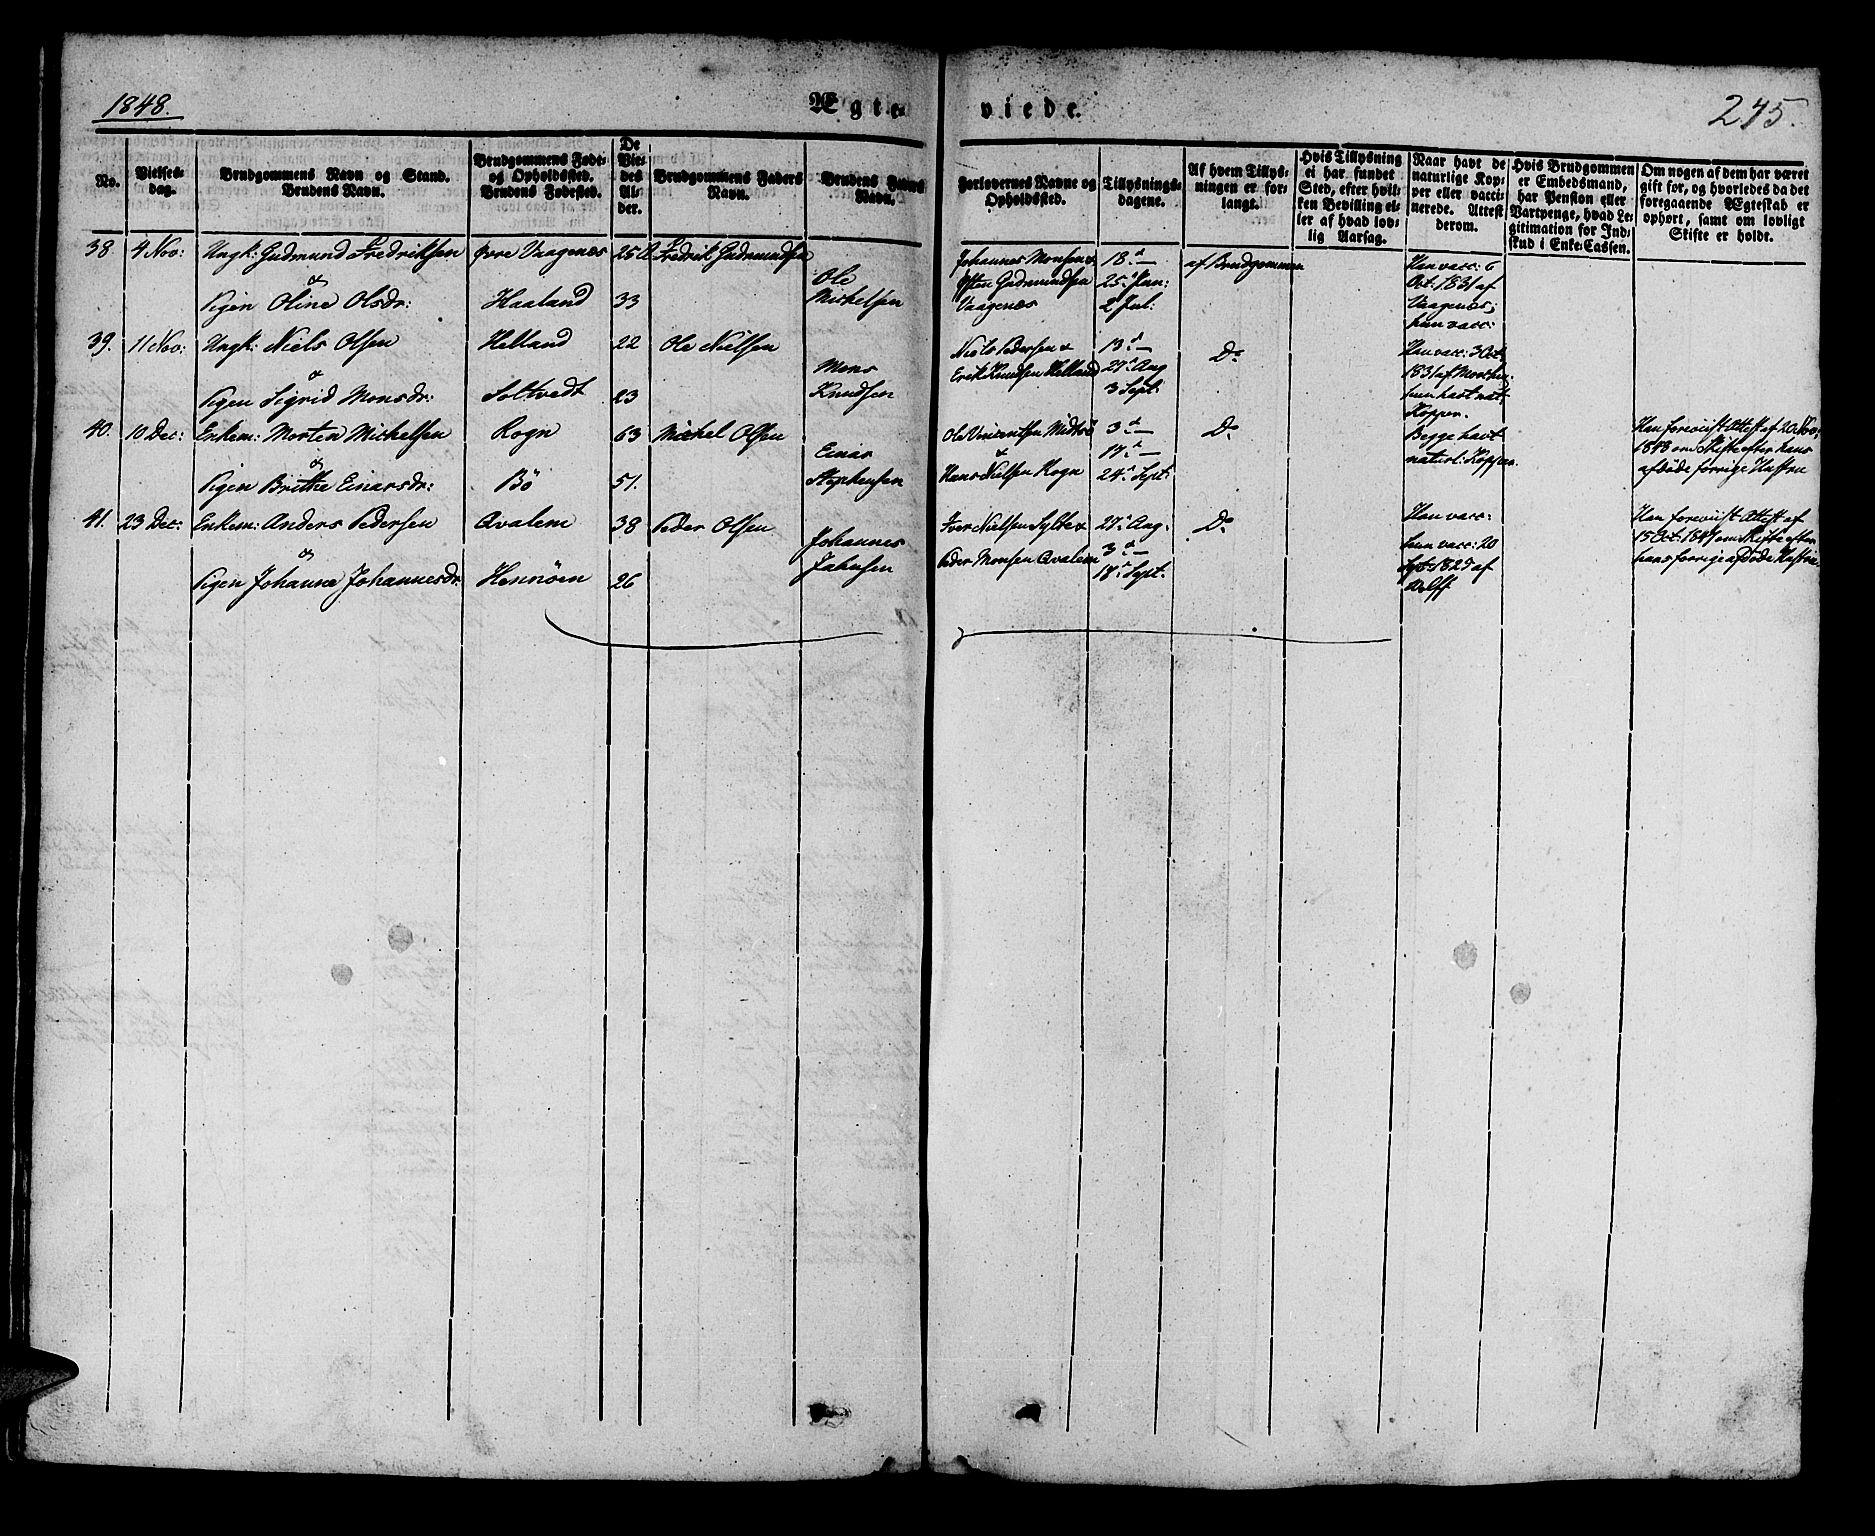 1848.
Ægte-
viede.
245.
No.
Vielses-
dag.
Brudgommens Navn og Stand.
Brudens Navn.
Brudgommens Føde-
og Opholdssted.
Brudens Fødested.
De
Vie-
des
Al-
der.
Brudgommens Faders
Navn.
Brudens Faders
Navn.
Forlovernes Navne og
Opholdssted.
Tillysnings-
dagene.
Af hvem Tillys-
ningen er for-
langt.
Hvis Tillysning
ei har fundet
Sted, efter hvil-
ken Bevilling el-
ler af hvad lov-
lig Aarsag.
Naar havt de
naturlige Kop-
per eller vacci-
nerede. Attest
derom.
Hvis Brudgommen
er Embedsmand,
har Pension eller
Vartpenge, hvad Le-
gitimation for Ind-
skud i Enke-Cassen.
Om nogen af dem har været
gift før, og hvorledes da det
foregaaende Ægteskab er
ophørt, samt om lovligt
Skifte er holdt.
38. 4 Nov: Ungk: Gudmund Fredriksen øvre Vaagenæs 25 A Fredrik Gudmundsen
&
Pigen Oline Olsdr: Haaland 33
Ole
Michelsen
Johannes Monsen &
Gudmundsen
Vaagenæs
18. d —
25. Jun:
2 Jul:
af Brudgommen
Han vacc: 6
Oct. 1831 af
Vaagenæs;
hun vacc:
39. 11 Nov: Ungk: Niels Olsen Helland 22 Ole Nielsen
&
Pigen Sigrid Monsdr: Soltvedt 23
Mons
Knudsen
Niels Pedersen &
Erik Knudsen Helland
13. d —
27. Aug
3 Sept:
Do
Han vacc: 3 Oct.
1831 af
hun havt nat:
Kopper.
40. 10 Dec: Enkem: Morten Michelsen Rogn 63 Michel Olsen
&
Pigen Brithe Einarsdr: Bö 51.
Einar
Stephensen
Ole Vincentsen Midtö
&
Hans Nielsen Rogn
3. d —
17. —
24. Sept:
Do
Begge havt
naturl: Kopper.
Han foreviist Attest af 20 Nov:
1848 om Skifte efter hans
afdöde forrige Hustru
41. 23 Dec: Enkem: Anders Pedersen Qvalem 38 Peder Olsen
&
Pigen Johanne Johannesdr: Hennöen 26
Johannes
Jahnsen
Iver Nielsen Sylte &
Peder Monsen Qvalem
27. Aug:
3. d —
18. Sept:
Do
Han vacc:
hun vacc: 20
Sept: 1829 af
Wolff
Han foreviist Attest af
15 Oct: om Skifte efter
hans forrige afdöde Hustru